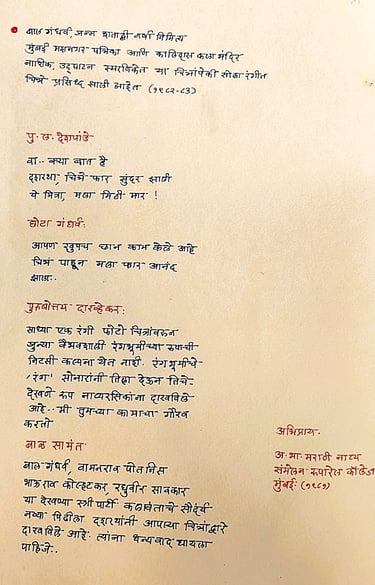 बाल गंधर्व जन्म शताब्दी वर्षा निमित्य
मुंबई महानगर पत्रिका आणि कालिदास कला मंदिर
नाशिक, उद्घाटन स्मरणिकेत या चित्रांपैकी सोळा रंगीत
चित्रे प्रसिध्द झाली आहेत (१९८२-८३)
पु. ल. देशपांडे
वा.. क्या बात है
दशरथा, चित्रे फार सुंदर झाली
ये मित्रा, मला मिठी मार !
छोटा गंधर्व:
आपण खुपच छान काम केले आहे
चित्रं पाहून मला फार आनंद
झाला..
पुरुषोत्तम दारव्हेकर:
साध्या एक रंगी फोटो चित्रांवरून
जुन्या वैभवशाली रंगभूमीच्या रूपाची
निटसी कल्पना येत नाही. रंगभूमीचे-
'रंग' सोनारांनी तिला देऊन तिचे-
देखणे रूप नाट्यरसिकांना दाखविले
आहे.. मी तुमच्या कामाचा गौरव
करतो
बाळ सामंत
बाल गंधर्व, वामनराव पोतनिस
भाऊराव कोल्हटकर, रघुवीर सावकार
या देखण्या स्त्री पार्टी कलावंताचे सौंदर्य
नव्या पिढीला दशरथांनी आपल्या चित्रांद्वारे
दाखविले आहे. त्यांना धन्यवाद द्यायला
पाहिजे..
अभिप्राय.
अ. भा. मराठी नाट्य
संमेलन रूपारेल कॉलेज
मुंबई. (१९८५)